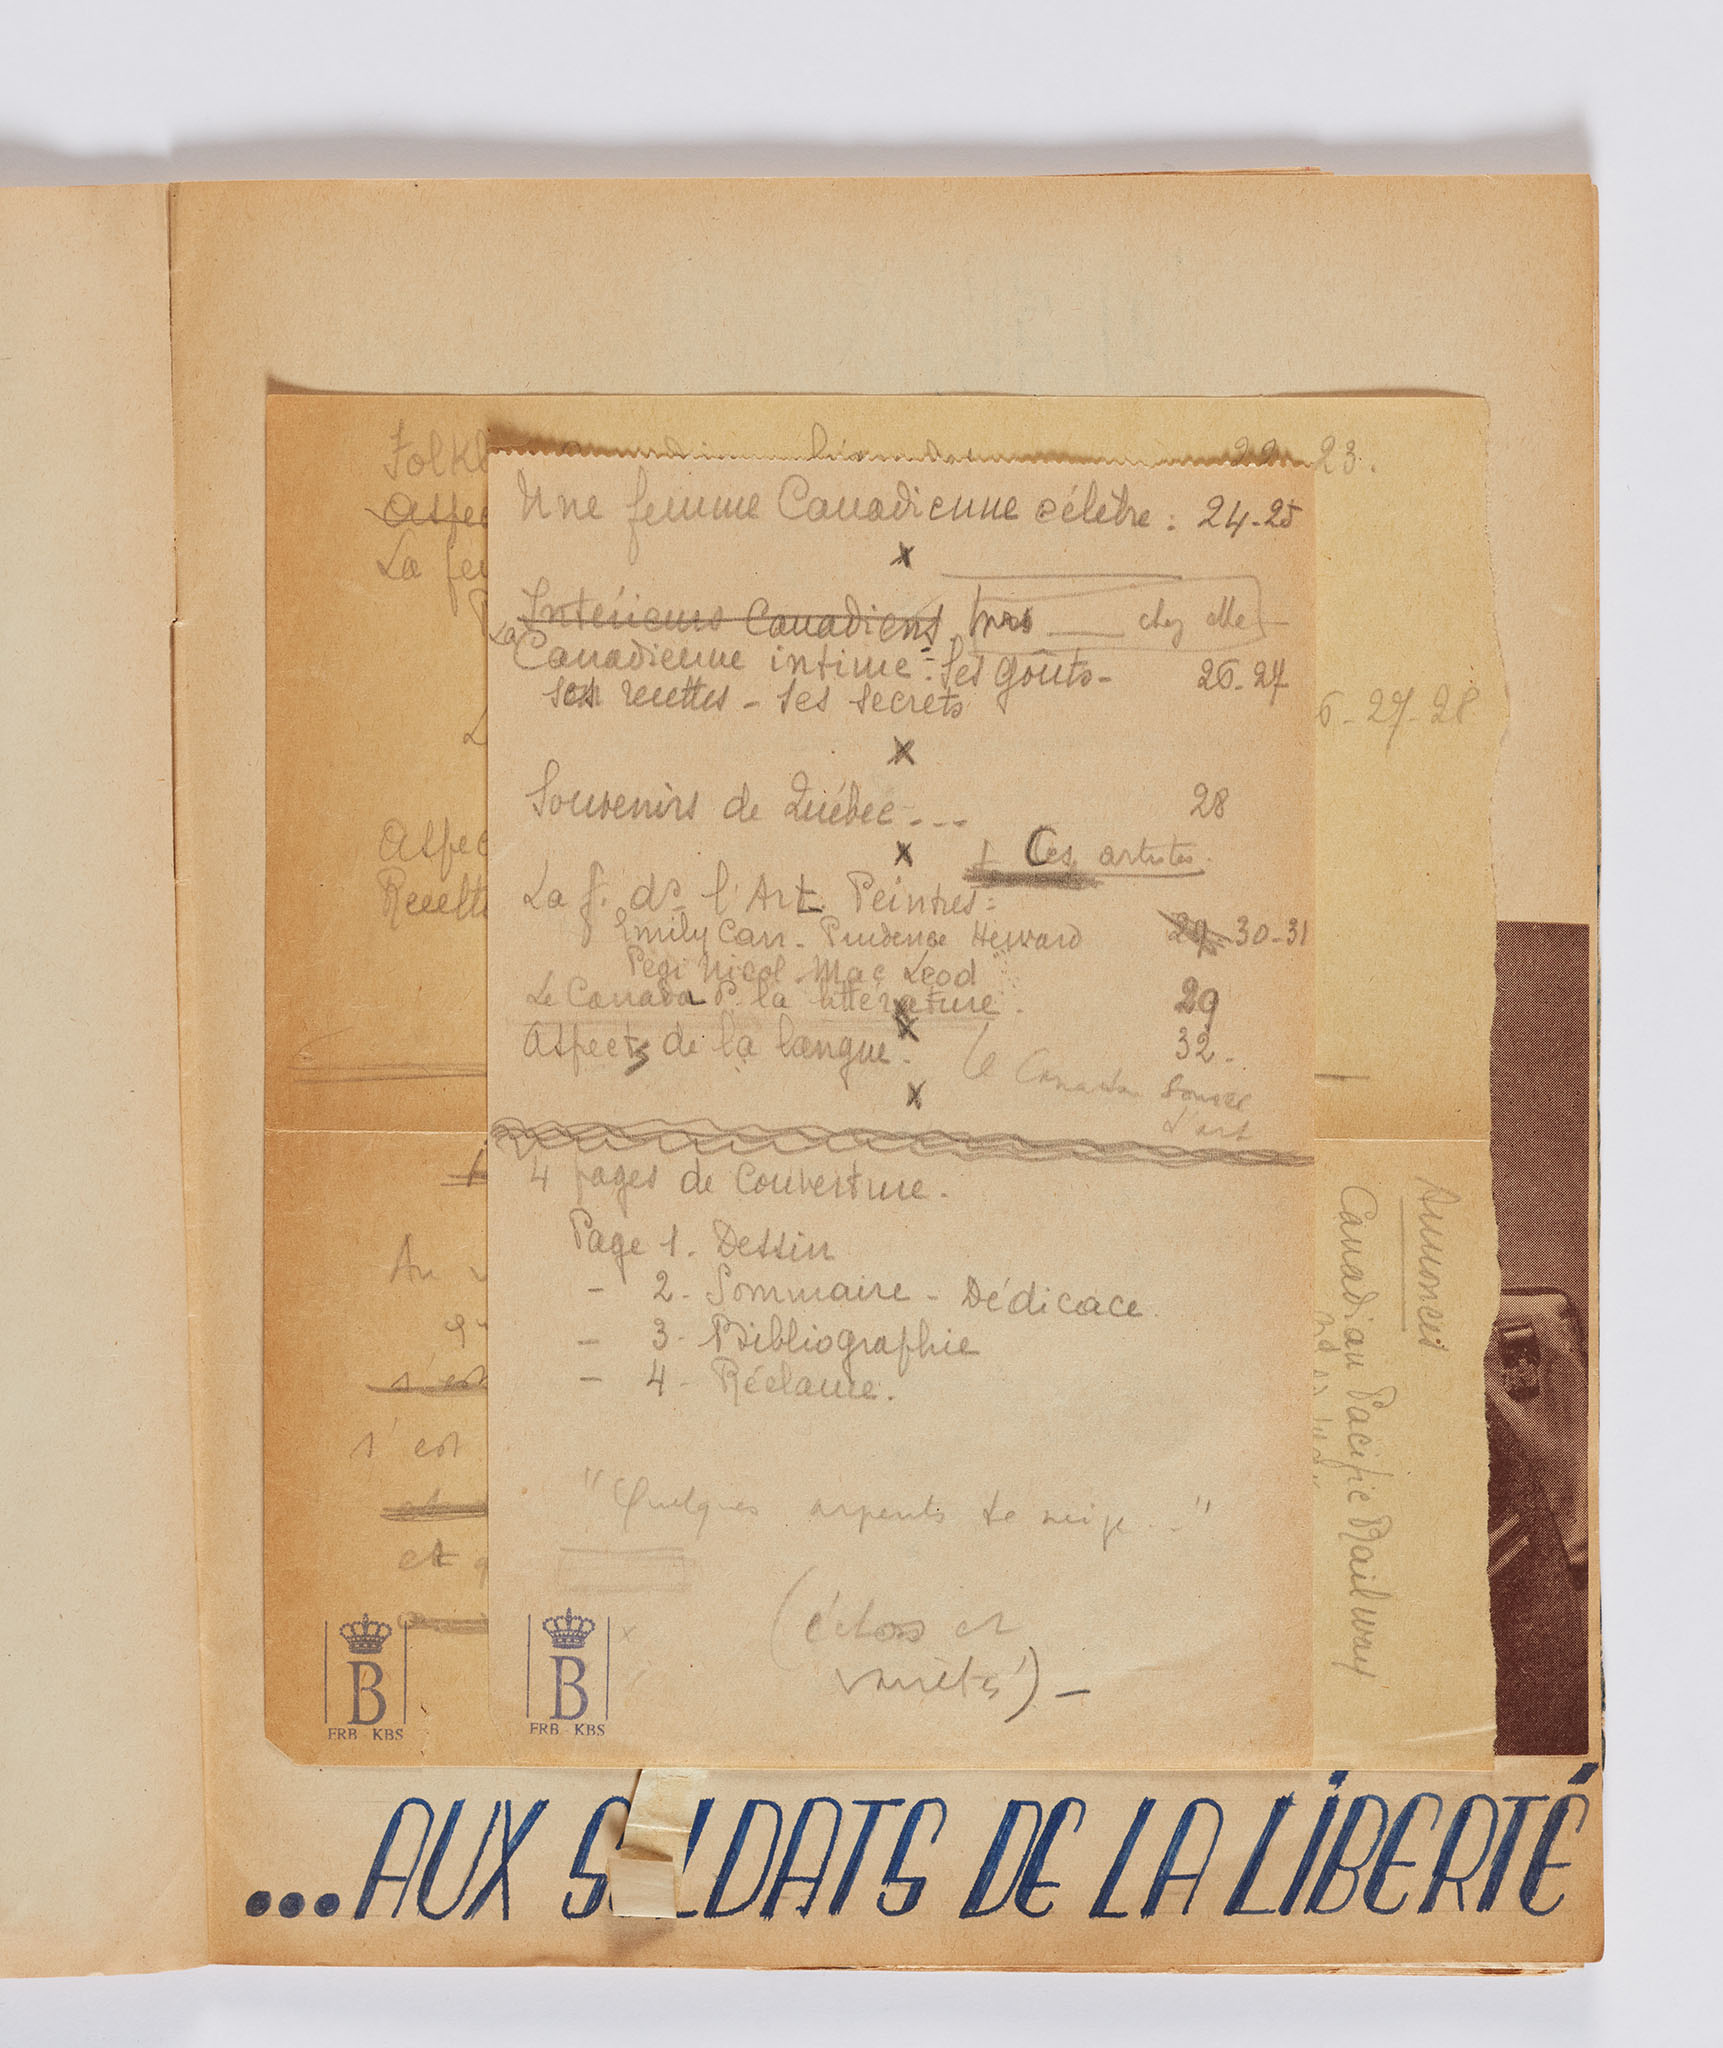 22 23.
Une femme Canadienne célèbre : 24-25
x
Intérieurs Canadiens Mrs ___ chez elle
La
Canadienne intime : Ses goûts - 26-27
ses recettes - ses secrets
x
6-27-28
Souvenirs de Québec - - - 28
x
Les artistes.
La f. ds l'Art. Peintres :
Emily Carr - Prudence Heward 29-30-31
Pegi Nicol Mac Leod
Le Canada ds la littérature. 29
Aspects de la langue. 32.
le Canada source
d'art
x
4 pages de couverture.
Page 1. Dessin
- 2. Sommaire - Dédicace.
- 3 - Bibliographie
- 4 - Réclame.
"Quelques arpents de neige..."
(échos et
variétés) -
Folkl
Aspec
La fe
Aspec
Recette
s'est
s'est
et
Annonces
Canadian Pacific Railway
B
FRB KBS
B
FRB KBS
...AUX SOLDATS DE LA LIBERTÉ